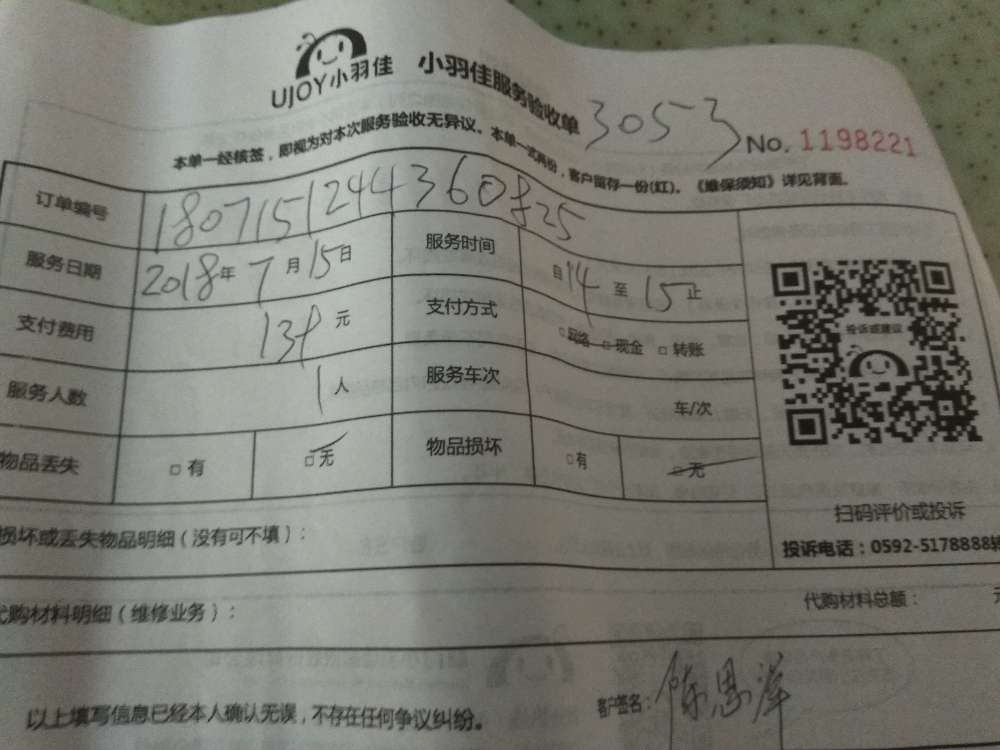 UJOY小羽佳 小羽佳服务验收单 3053 No. 1198221
本单一经核签，即视为对本次服务验收无异议。本单一式两份，客户留存一份(红)。《维保须知》详见背面。
订单编号 1807151244360825
服务日期 2018年7月15日 服务时间 自14至15止
支付费用 元 支付方式 □网络 □现金 □转账
服务人数 1人 服务车次 车/次
物品丢失 □有 □无 物品损坏 □有 □无
投诉或建议
扫码评价或投诉
投诉电话：0592-5178888转
损坏或丢失物品明细（没有可不填）：
代购材料明细（维修业务）： 代购材料总额： 元
以上填写信息已经本人确认无误，不存在任何争议纠纷。 客户签名：陈思萍